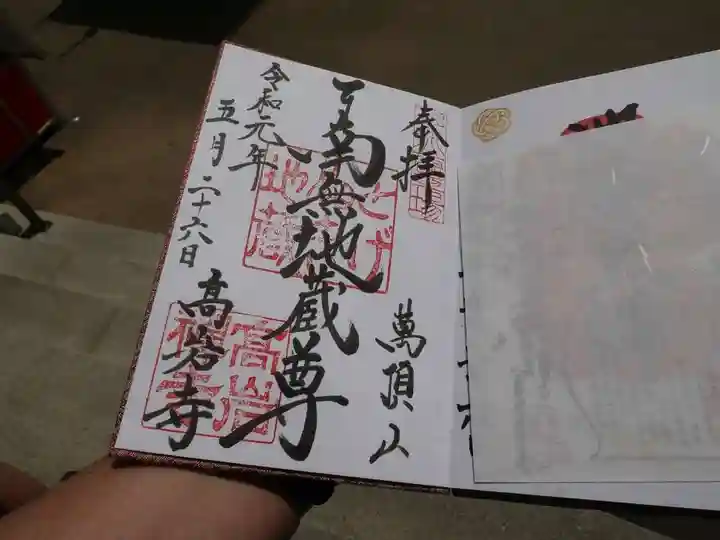 奉拝
萬頂山
南無地蔵尊
高岩寺
令和元年
五月二十六日
とげ
地蔵
高岩